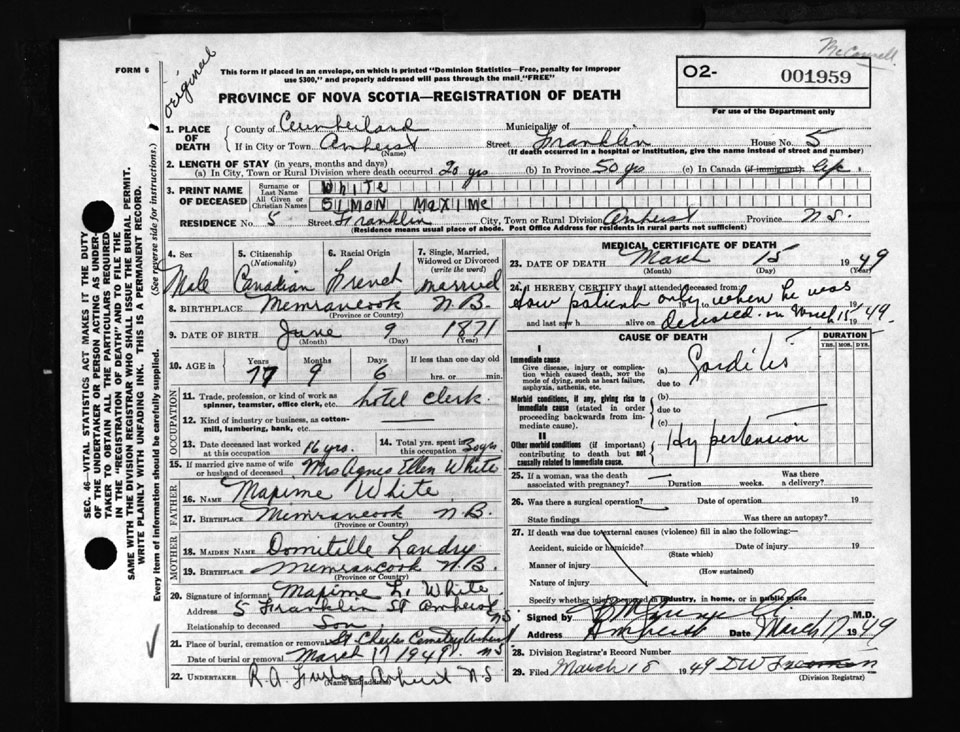 McConnell
FORM 6
original
This form if placed in an envelope, on which is printed "Dominion Statistics—Free, penalty for improper
use $300," and properly addressed will pass through the mail "FREE"
PROVINCE OF NOVA SCOTIA—REGISTRATION OF DEATH
O2- 001959
For use of the Department only
SEC. 46—VITAL STATISTICS ACT MAKES IT THE DUTY
OF THE UNDERTAKER OR PERSON ACTING AS UNDER-
TAKER TO OBTAIN ALL THE PARTICULARS REQUIRED
IN THE "REGISTRATION OF DEATH" AND TO FILE THE
SAME WITH THE DIVISION REGISTRAR WHO SHALL ISSUE THE BURIAL PERMIT.
WRITE PLAINLY WITH UNFADING INK. THIS IS A PERMANENT RECORD.
Every item of information should be carefully supplied. (See reverse side for instructions.)
1. PLACE OF DEATH County of Cumberland Municipality of
If in City or Town Amherst (Name) Street Franklin House No. 5
(If death occurred in a hospital or institution, give the name instead of street and number)
2. LENGTH OF STAY (in years, months and days)
(a) In City, Town or Rural Division where death occurred 20 yrs (b) In Province 50 yrs (c) In Canada (if immigrant) life.
3. PRINT NAME OF DECEASED Surname or Last Name White
All Given or Christian Names SIMON MAXIME
RESIDENCE No. 5 Street Franklin City, Town or Rural Division Amherst Province N.S.
(Residence means usual place of abode. Post Office Address for residents in rural parts not sufficient)
4. Sex Male
5. Citizenship (Nationality) Canadian
6. Racial Origin French
7. Single, Married, Widowed or Divorced (write the word) married
8. BIRTHPLACE Memramcook N.B.
(Province or Country)
9. DATE OF BIRTH June 9 1871
(Month) (Day) (Year)
10. AGE in Years 77 Months 9 Days 6 If less than one day old hrs. or min.
OCCUPATION
11. Trade, profession, or kind of work as spinner, teamster, office clerk, etc. hotel clerk.
12. Kind of industry or business, as cotton-mill, lumbering, bank, etc.
13. Date deceased last worked at this occupation 16 yrs.
14. Total yrs. spent in this occupation 30 yrs
15. If married give name of wife or husband of deceased Mrs Agnes Ellen White
FATHER
16. NAME Maxime White
17. BIRTHPLACE Memramcook N.B.
(Province or Country)
MOTHER
18. MAIDEN NAME Domitille Landry
19. BIRTHPLACE Memramcook N.B.
(Province or Country)
20. Signature of informant Maxime L. White
Address 5 Franklin St Amherst NS
Relationship to deceased Son
21. Place of burial, cremation or removal St. Charles Cemetery Amherst NS
Date of burial or removal March 17 1949
22. UNDERTAKER R.A. Furlong Amherst N.S.
(Name and address)
MEDICAL CERTIFICATE OF DEATH
23. DATE OF DEATH March 15 1949
(Month) (Day) (Year)
24. I HEREBY CERTIFY that I attended deceased from:
Saw patient only when he was
and last saw h alive on deceased on March 15 1949.
CAUSE OF DEATH
DURATION
YRS. MOS. DYS.
I
Immediate cause
Give disease, injury or complication which caused death, NOT the mode of dying, such as heart failure, asphyxia, asthenia, etc.
(a)
due to
Morbid conditions, if any, giving rise to immediate cause (stated in order proceeding backwards from immediate cause).
(b)
due to
(c)
II
Other morbid conditions (if important) contributing to death but not causally related to immediate cause.
Hypertension
25. If a woman, was the death associated with pregnancy? Duration weeks. Was there a delivery?
26. Was there a surgical operation? Date of operation 19
State findings Was there an autopsy?
27. If death was due to external causes (violence) fill in also the following:
Accident, suicide or homicide? Date of injury 19
(State which)
Manner of injury
(How sustained)
Nature of injury
Specify whether injury occurred in industry, in home, or in public place
Signed by M.D.
Address Amherst Date March 17 1949
28. Division Registrar's Record Number
29. Filed March 18 1949
(Division Registrar)